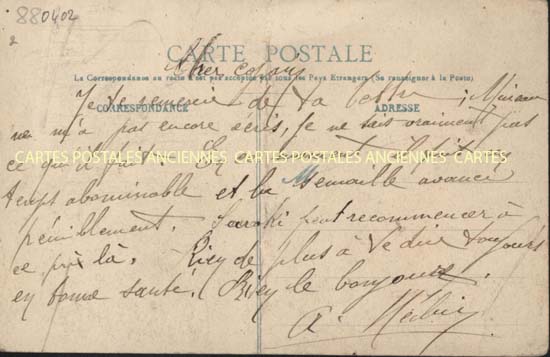 880402
2
CARTE POSTALE
La Correspondance au recto n'est pas acceptée par tous les Pays Etrangers (Se renseigner à la Poste)
Cher
CORRESPONDANCE
ADRESSE
Je te remercie de ta lettre ;
ne m'a pas encore écris, je ne sais vraiment pas
ce qu'il fait.
CARTES POSTALES ANCIENNES CARTES POSTALES ANCIENNES CARTES POSTALES ANCIENNES
temps abominable et la semaille avance
péniblement. peut recommencer à
ce prix là. Rien de plus à te dire toujours
en bonne santé. Bien le bonjour.
A.